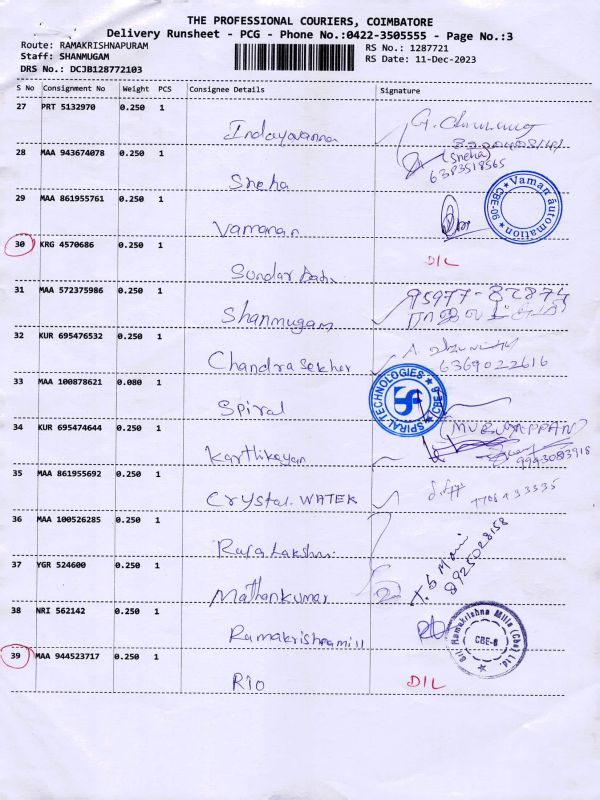 THE PROFESSIONAL COURIERS, COIMBATORE
Delivery Runsheet - PCG - Phone No.:0422-3505555 - Page No.:3
Route: RAMAKRISHNAPURAM
RS No.: 1287721
Staff: SHANMUGAM
RS Date: 11-Dec-2023
DRS No.: DCJB128772103
S No Consignment No Weight PCS Consignee Details Signature
27 PRT 5132970 0.250 1
28 MAA 943674078 0.250 1 (Sneha)
6383518565
Sneha
29 MAA 861955761 0.250 1
Vamanan
Vaman automation CBE-06
30 KRG 4570686 0.250 1 DIL
Sundar
31 MAA 572375986 0.250 1 95977-82874
Shanmugam
ராஜலட்சுமி
32 KUR 695476532 0.250 1
Chandrasekher 6369022616
33 MAA 100878621 0.080 1
Spiral
SPIRAL TECHNOLOGIES
34 KUR 695474644 0.250 1 (MURUYAPPAN)
Karthikeyan 9943083918
35 MAA 861955692 0.250 1
Crystal. WATER
36 MAA 100526285 0.250 1
Raja Lakshmi
37 YGR 524600 0.250 1 T. S Mani
8925028158
Mathankumar
38 NRI 562142 0.250 1
Ramakrishna mill
Sri Ramakrishna Mills (Cbe) Ltd. CBE-6
39 MAA 944523717 0.250 1
RIO DIL